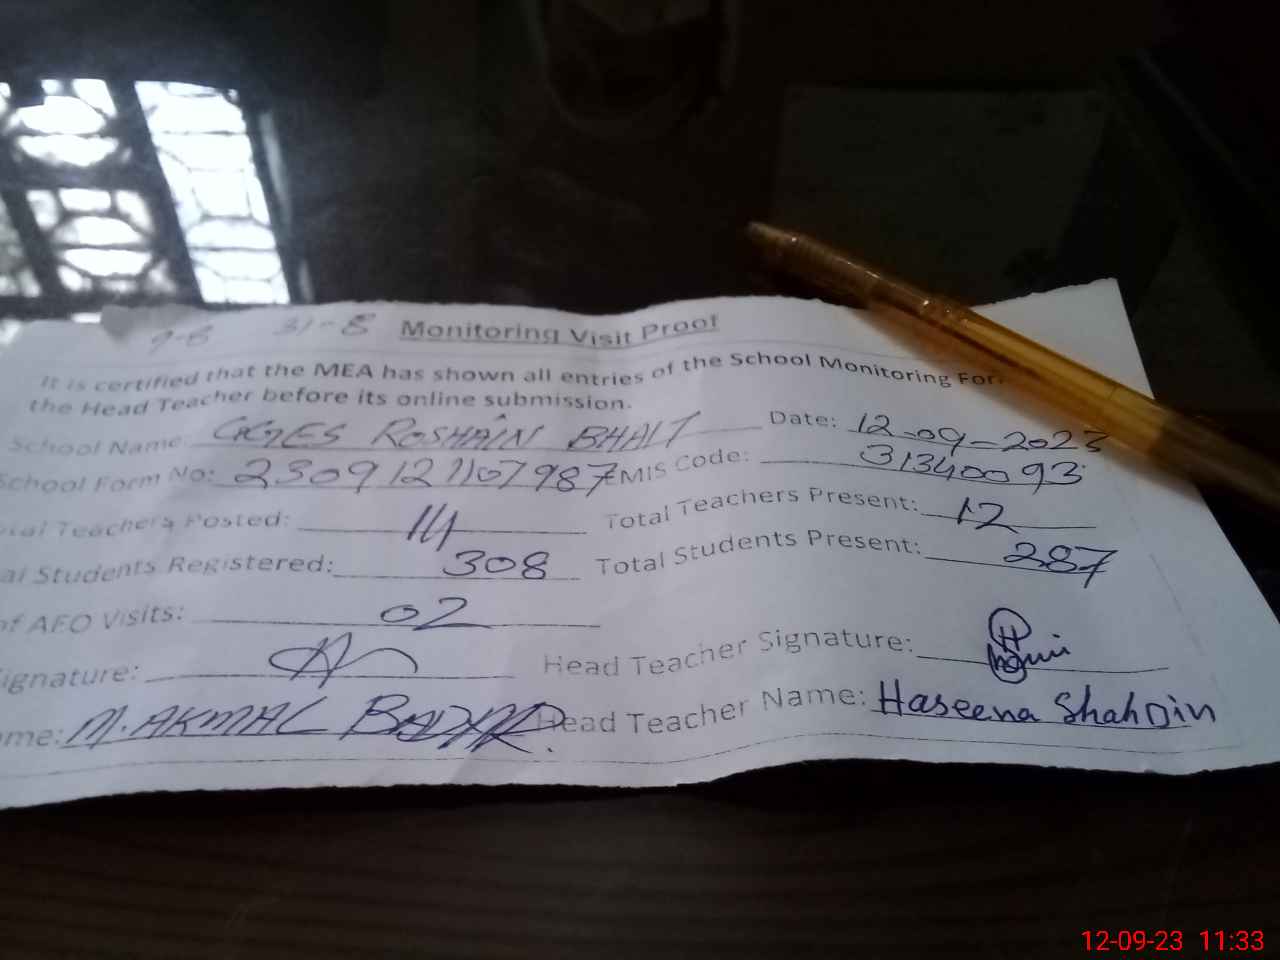 9-8 31-8 Monitoring Visit Proof
It is certified that the MEA has shown all entries of the School Monitoring For
the Head Teacher before its online submission.
School Name: GGES ROSHAIN BHAIT Date: 12-09-2023
School Form No: 2309121107987 EMIS Code: 31340093
tal Teachers Posted: 14 Total Teachers Present: 12
al Students Registered: 308 Total Students Present: 287
of AEO Visits: 02
ignature: Head Teacher Signature:
me: M. AKMAL Head Teacher Name: Haseena Shaheen
12-09-23 11:33